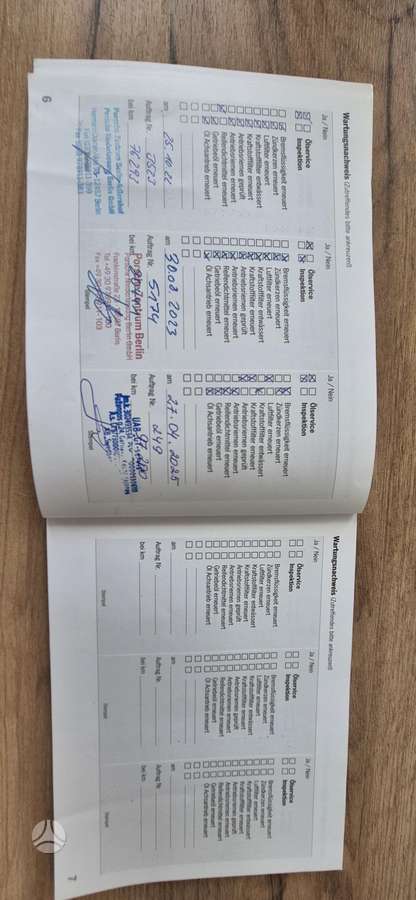 Wartungsnachweis (Zutreffendes bitte ankreuzen!)
Ja / Nein
Ölservice
Inspektion
Bremsflüssigkeit erneuert
Zündkerzen erneuert
Luftfilter erneuert
Kraftstofffilter entwässert
Kraftstofffilter erneuert
Antriebsriemen geprüft
Antriebsriemen erneuert
Reifendichtmittel erneuert
Getriebeöl erneuert
Öl Achsantrieb erneuert
am 25.10.22
Auftrag Nr.
bei km
Porsche Zentrum
6
Ja / Nein
Ölservice
Inspektion
Bremsflüssigkeit erneuert
Zündkerzen erneuert
Luftfilter erneuert
Kraftstofffilter entwässert
Kraftstofffilter erneuert
Antriebsriemen geprüft
Antriebsriemen erneuert
Reifendichtmittel erneuert
Getriebeöl erneuert
Öl Achsantrieb erneuert
am 30.08.2023
Auftrag Nr. 5174
bei km
Porsche Zentrum Berlin
Berlin GmbH
Stempel
Ja / Nein
Ölservice
Inspektion
Bremsflüssigkeit erneuert
Zündkerzen erneuert
Luftfilter erneuert
Kraftstofffilter entwässert
Kraftstofffilter erneuert
Antriebsriemen geprüft
Antriebsriemen erneuert
Reifendichtmittel erneuert
Getriebeöl erneuert
Öl Achsantrieb erneuert
am 27.04.2025
Auftrag Nr. 249
bei km
UAB
Stempel
Wartungsnachweis (Zutreffendes bitte ankreuzen!)
Ja / Nein
Ölservice
Inspektion
Bremsflüssigkeit erneuert
Zündkerzen erneuert
Luftfilter erneuert
Kraftstofffilter entwässert
Kraftstofffilter erneuert
Antriebsriemen geprüft
Antriebsriemen erneuert
Reifendichtmittel erneuert
Getriebeöl erneuert
Öl Achsantrieb erneuert
am
Auftrag Nr.
bei km
Stempel
Ja / Nein
Ölservice
Inspektion
Bremsflüssigkeit erneuert
Zündkerzen erneuert
Luftfilter erneuert
Kraftstofffilter entwässert
Kraftstofffilter erneuert
Antriebsriemen geprüft
Antriebsriemen erneuert
Reifendichtmittel erneuert
Getriebeöl erneuert
Öl Achsantrieb erneuert
am
Auftrag Nr.
bei km
Stempel
Ja / Nein
Ölservice
Inspektion
Bremsflüssigkeit erneuert
Zündkerzen erneuert
Luftfilter erneuert
Kraftstofffilter entwässert
Kraftstofffilter erneuert
Antriebsriemen geprüft
Antriebsriemen erneuert
Reifendichtmittel erneuert
Getriebeöl erneuert
Öl Achsantrieb erneuert
am
Auftrag Nr.
bei km
Stempel
7